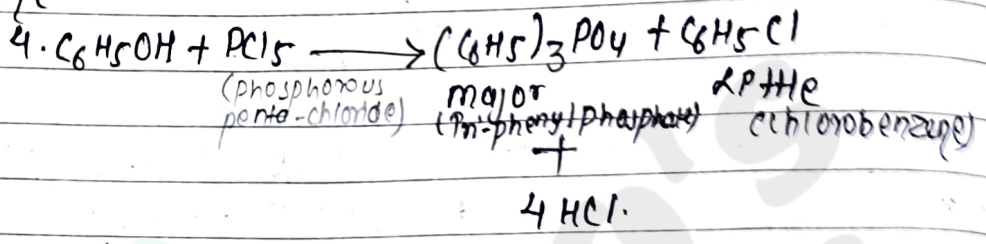 4. C6H5OH + PCl5 ⟶ (C6H5)3PO4 + C6H5Cl
(phosphorous major
penta-chloride) (Tri-phenyl phosphate) (chlorobenzene)
+
4 HCl.